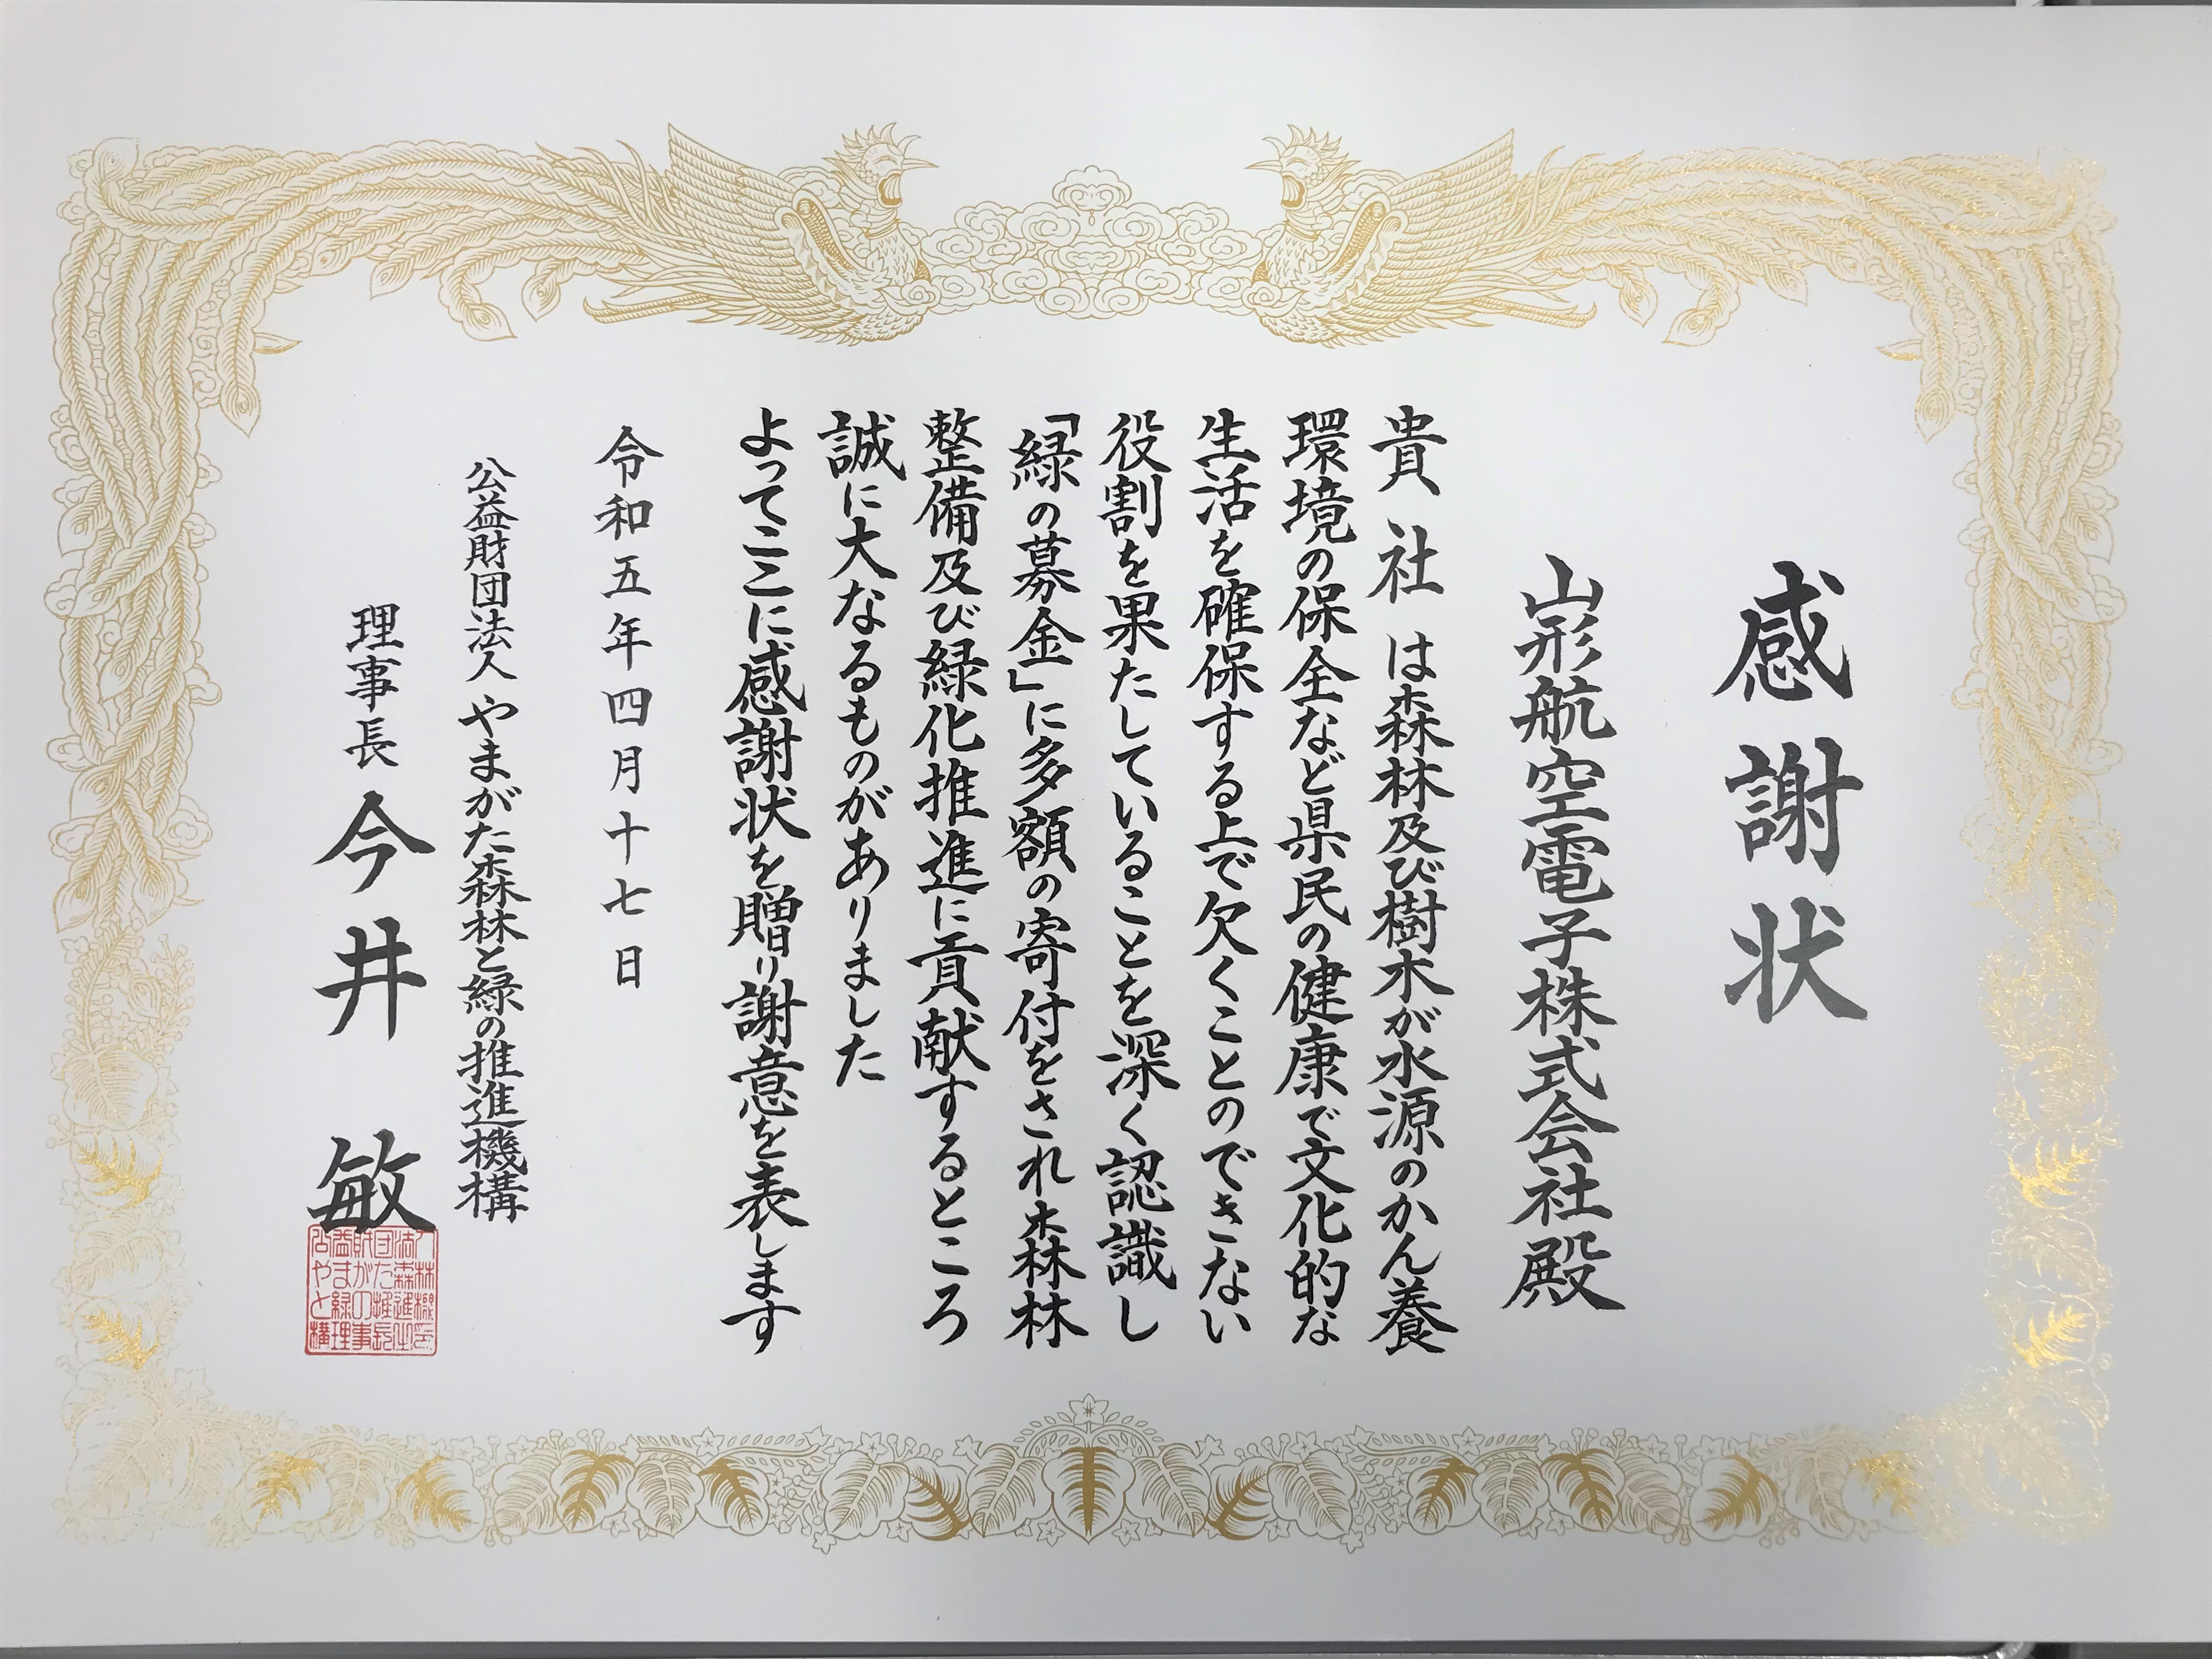 感謝状
山形航空電子株式会社殿
貴社は森林及び樹木が水源のかん養
環境の保全など県民の健康で文化的な
生活を確保する上で欠くことのできない
役割を果たしていることを深く認識し
「緑の募金」に多額の寄付をされ森林
整備及び緑化推進に貢献するところ
誠に大なるものがありました
よってここに感謝状を贈り謝意を表します
令和五年四月十七日
公益財団法人やまがた森林と緑の推進機構
理事長 今井 敏
公益財団法人
やまがた森林
と緑の推進機
構理事長之印